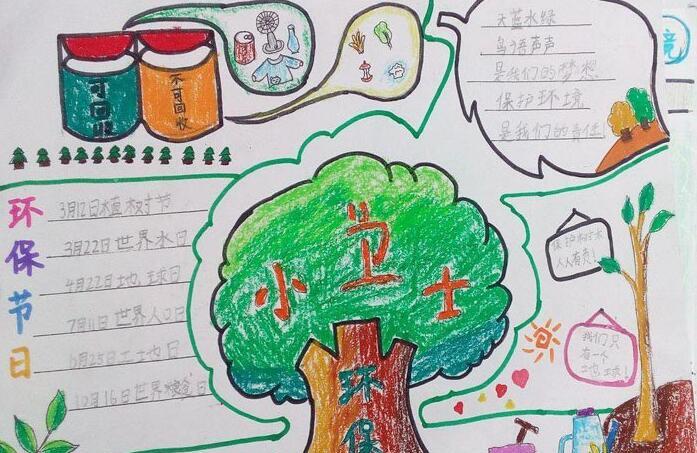 可回收
不可回收
天蓝水绿
鸟语声声
是我们的梦想
保护环境
是我们的责任!
环保节日
3月12日植树节
3月22日世界水日
4月22日地球日
7月11日世界人口日
6月25日土地日
10月16日世界粮食日
小卫士
环保
保护树木
人人有责!
我们只
有一个
地球!
境